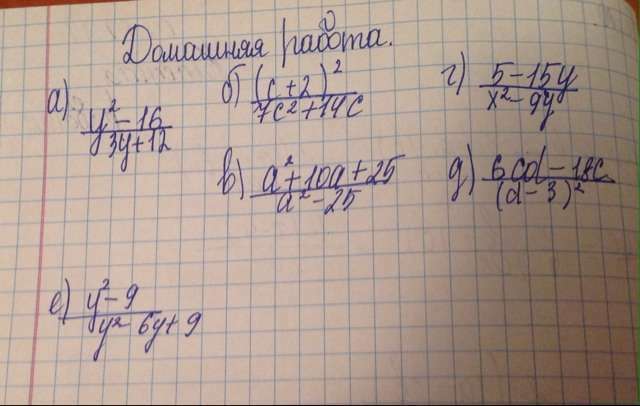 Домашняя работа.
а) y² - 16 / 3y + 12
б) (c + 2)² / 7c² + 14c
г) 5 - 15y / x² - 9y
в) a² + 10a + 25 / a² - 25
д) 6cd - 18c / (d - 3)²
е) y² - 9 / y² - 6y + 9